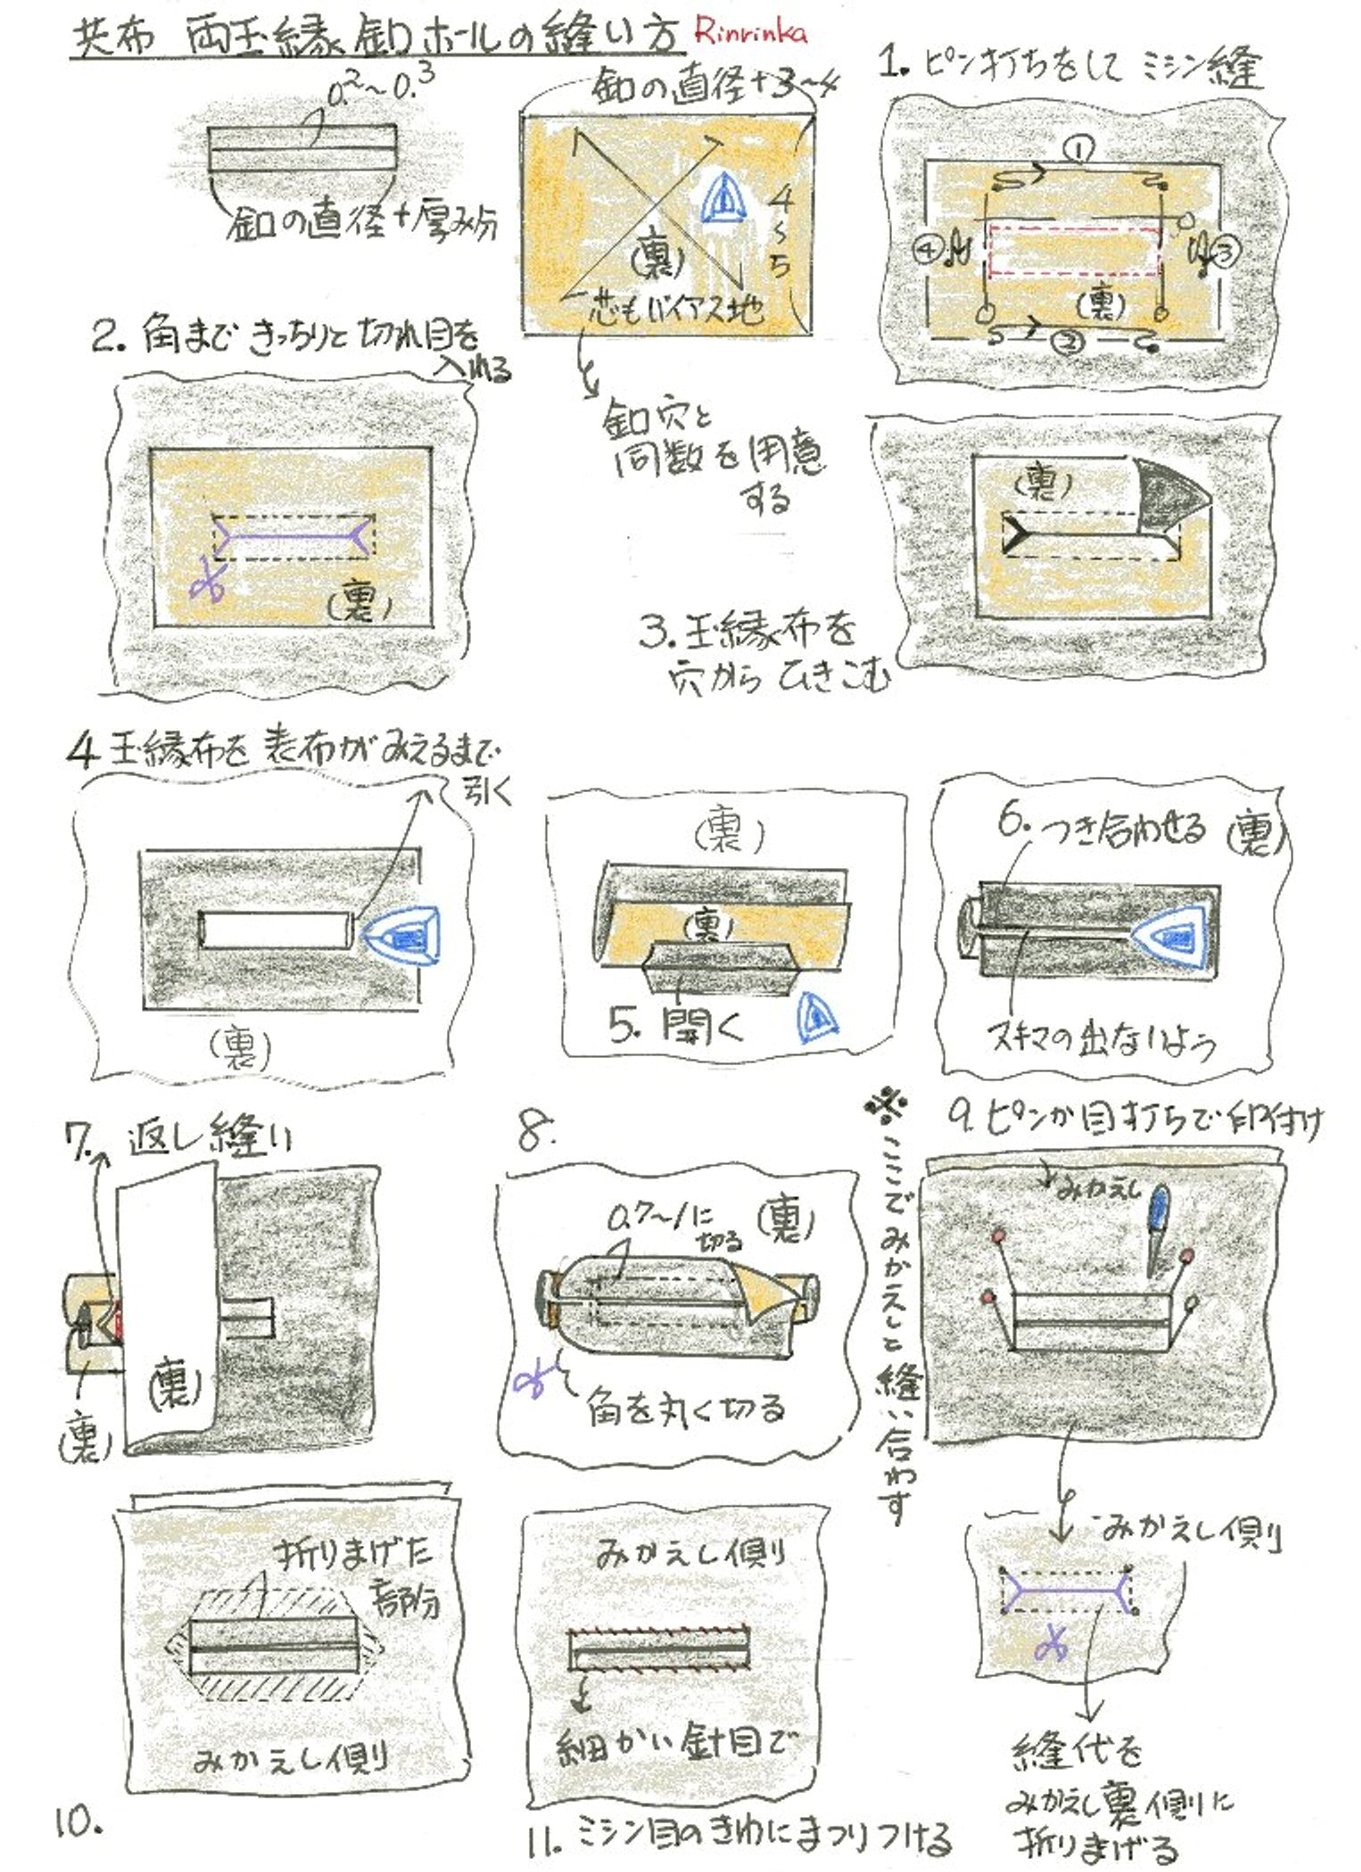 共布 両玉縁釦ホールの縫い方 Rinrinka
0.2~0.3
釦の直径+厚み分
釦の直径+3~4
4~5
(裏)
芯もバイアス地
釦穴と
同数を用意
する
1. ピン打ちをして ミシン縫
①
④
③
(裏)
②
2. 角まで きっちりと 切れ目を
入れる
(裏)
(裏)
3. 玉縁布を
穴から ひきこむ
4 玉縁布を 表布が みえるまで
引く
(裏)
(裏)
(裏)
5. 開く
6. つき合わせる (裏)
スキマの出ないよう
7. 返し縫い
(裏)
(裏)
8.
0.7~1に
切る
(裏)
角を丸く切る
※ここでみかえしと縫い合わす
9. ピンか目打ちで印付け
みかえし
みかえし側
縫代を
みかえし裏側に
折りまげる
折りまげた
部分
みかえし側
10.
みかえし側
細かい針目で
11. ミシン目のきわにまつりつける